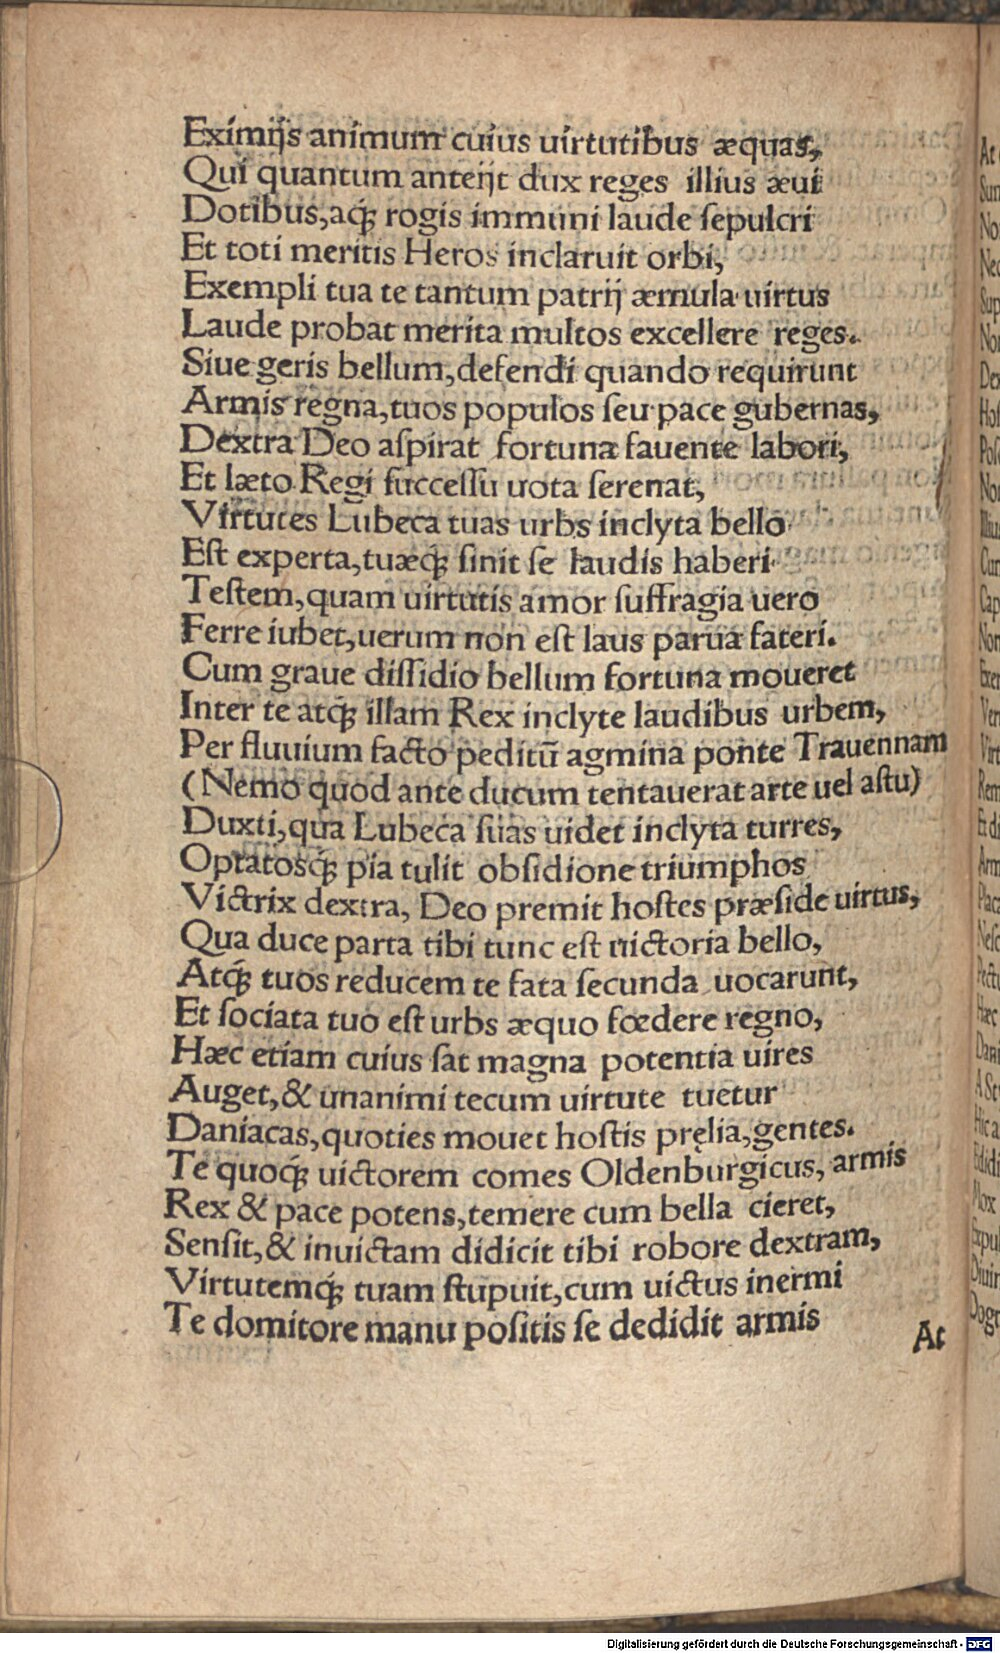 Eximijs animum cuius uirtutibus æquas,
Qui quantum anteijt dux reges illius æui
Dotibus, aqꝫ rogis immuni laude ſepulcri
Et toti meritis Heros inclaruit orbi,
Exempli tua te tantum patrij æmula uirtus
Laude probat merita multos excellere reges.
Siue geris bellum, defendi quando requirunt
Armis regna, tuos populos ſeu pace gubernas,
Dextra Deo aſpirat fortuna fauente labori,
Et læto Regi ſucceſſu uota ſerenat,
Virtutes Lubeca tuas urbs inclyta bello
Eſt experta, tuæqꝫ ſinit ſe laudis haberi
Teſtem, quam uirtutis amor ſuffragia uero
Ferre iubet, uerum non eſt laus parua fateri.
Cum graue diſſidio bellum fortuna moueret
Inter te atqꝫ illam Rex inclyte laudibus urbem,
Per fluuium facto peditū agmina ponte Trauennam
(Nemo quod ante ducum tentauerat arte uel aſtu)
Duxti, qua Lubeca ſuas uidet inclyta turres,
Optatosqꝫ pia tulit obſidione triumphos
Victrix dextra, Deo premit hoſtes præſide uirtus,
Qua duce parta tibi tunc eſt uictoria bello,
Atqꝫ tuos reducem te fata ſecunda uocarunt,
Et ſociata tuo eſt urbs æquo fœdere regno,
Hæc etiam cuius ſat magna potentia uires
Auget, & unanimi tecum uirtute tuetur
Daniacas, quoties mouet hoſtis pręlia, gentes.
Te quoqꝫ uictorem comes Oldenburgicus, armis
Rex & pace potens, temere cum bella cieret,
Senſit, & inuictam didicit tibi robore dextram,
Virtutemqꝫ tuam ſtupuit, cum uictus inermi
Te domitore manu poſitis ſe dedidit armis
At
Digitalisierung gefördert durch die Deutsche Forschungsgemeinschaft - DFG